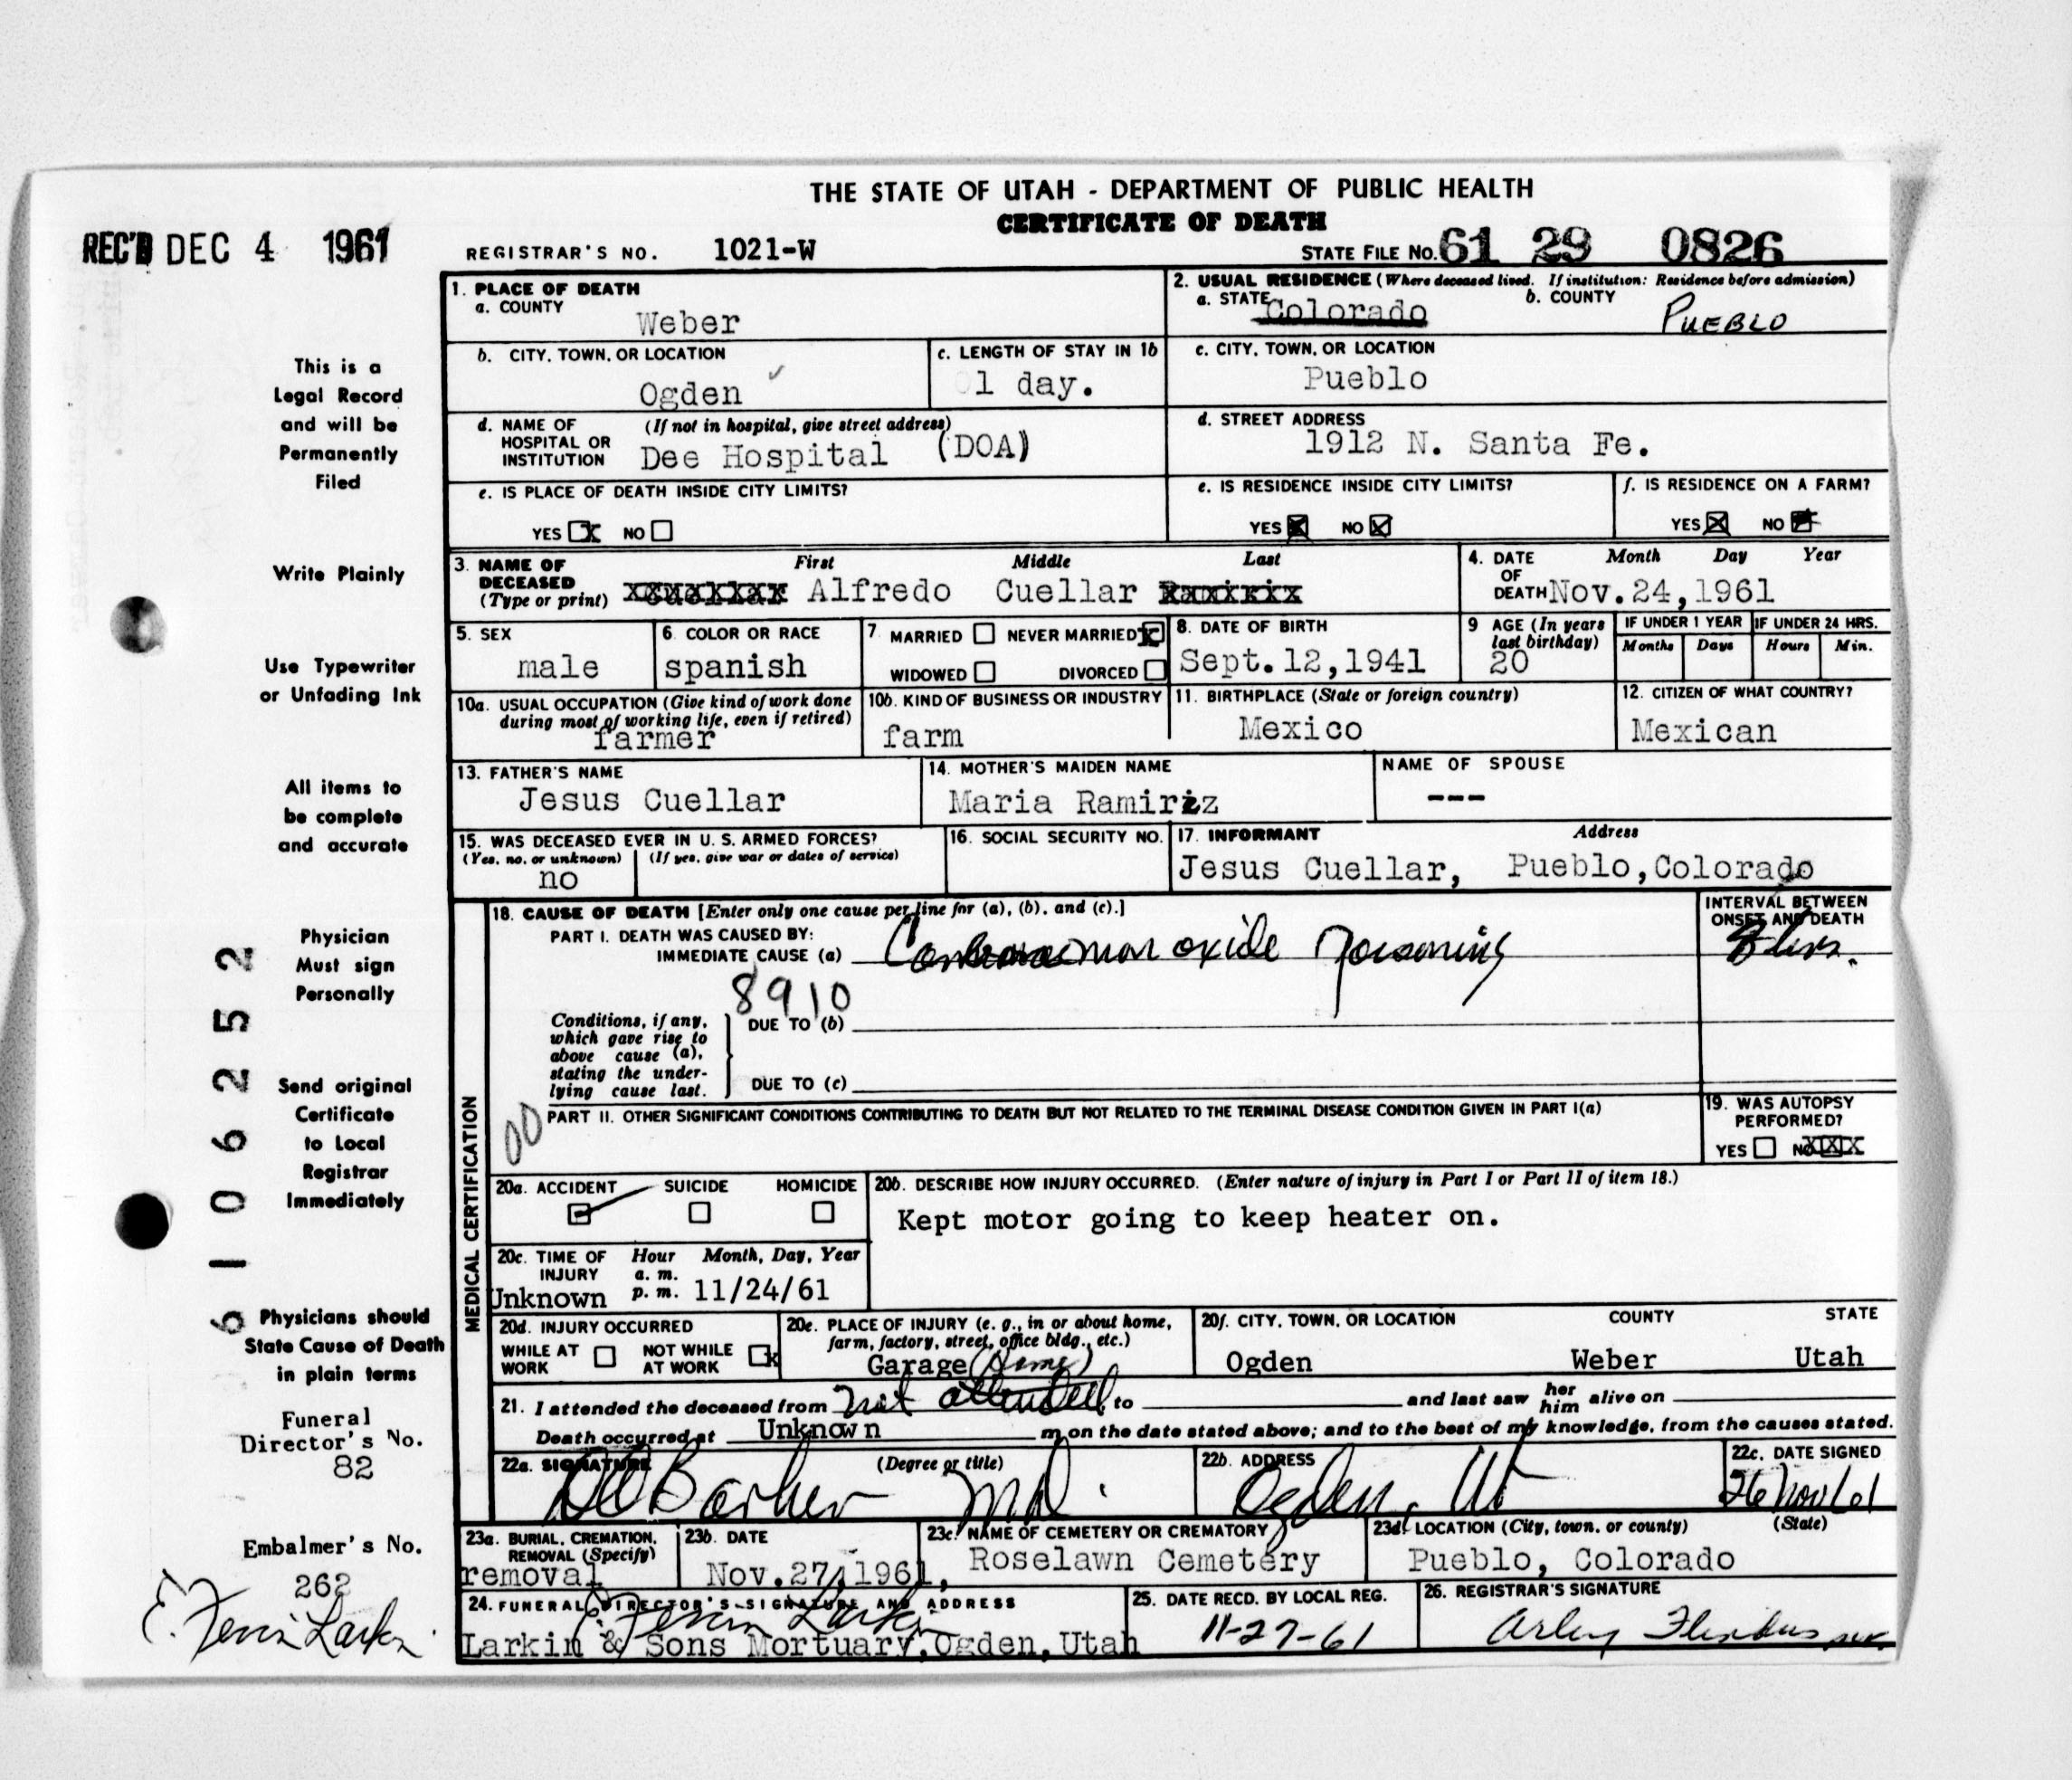 THE STATE OF UTAH - DEPARTMENT OF PUBLIC HEALTH
CERTIFICATE OF DEATH
REC'D DEC 4 1961
REGISTRAR'S NO. 1021-W
STATE FILE NO. 61 29 0826
1. PLACE OF DEATH
a. COUNTY
Weber
2. USUAL RESIDENCE (Where deceased lived. If institution: Residence before admission)
a. STATE Colorado b. COUNTY PUEBLO
b. CITY, TOWN, OR LOCATION
Ogden
c. LENGTH OF STAY IN 1b
1 day.
c. CITY, TOWN, OR LOCATION
Pueblo
d. NAME OF HOSPITAL OR INSTITUTION (If not in hospital, give street address)
Dee Hospital (DOA)
d. STREET ADDRESS
1912 N. Santa Fe.
e. IS PLACE OF DEATH INSIDE CITY LIMITS?
YES X NO
e. IS RESIDENCE INSIDE CITY LIMITS?
YES NO
f. IS RESIDENCE ON A FARM?
YES NO
3. NAME OF DECEASED (Type or print)
First Middle Last
Alfredo Cuellar
4. DATE OF DEATH Month Day Year
Nov. 24, 1961
5. SEX
male
6. COLOR OR RACE
spanish
7. MARRIED NEVER MARRIED X
WIDOWED DIVORCED
8. DATE OF BIRTH
Sept. 12, 1941
9 AGE (In years last birthday)
20
IF UNDER 1 YEAR
Months Days
IF UNDER 24 HRS.
Hours Min.
10a. USUAL OCCUPATION (Give kind of work done during most of working life, even if retired)
farmer
10b. KIND OF BUSINESS OR INDUSTRY
farm
11. BIRTHPLACE (State or foreign country)
Mexico
12. CITIZEN OF WHAT COUNTRY?
Mexican
13. FATHER'S NAME
Jesus Cuellar
14. MOTHER'S MAIDEN NAME
Maria Ramiriz
NAME OF SPOUSE
---
15. WAS DECEASED EVER IN U. S. ARMED FORCES?
(Yes, no, or unknown) (If yes, give war or dates of service)
no
16. SOCIAL SECURITY NO.
17. INFORMANT Address
Jesus Cuellar, Pueblo, Colorado
MEDICAL CERTIFICATION
18. CAUSE OF DEATH [Enter only one cause per line for (a), (b), and (c).]
PART I. DEATH WAS CAUSED BY:
IMMEDIATE CAUSE (a) Carbon monoxide poisoning
INTERVAL BETWEEN ONSET AND DEATH
8910
Conditions, if any, which gave rise to above cause (a), stating the underlying cause last.
DUE TO (b)
DUE TO (c)
00
PART II. OTHER SIGNIFICANT CONDITIONS CONTRIBUTING TO DEATH BUT NOT RELATED TO THE TERMINAL DISEASE CONDITION GIVEN IN PART I(a)
19. WAS AUTOPSY PERFORMED?
YES NO XXX
20a. ACCIDENT SUICIDE HOMICIDE
20b. DESCRIBE HOW INJURY OCCURRED. (Enter nature of injury in Part I or Part II of item 18.)
Kept motor going to keep heater on.
20c. TIME OF INJURY Hour Month, Day, Year
a. m.
p. m.
Unknown 11/24/61
20d. INJURY OCCURRED
WHILE AT WORK NOT WHILE AT WORK X
20e. PLACE OF INJURY (e. g., in or about home, farm, factory, street, office bldg., etc.)
Garage (Home)
20f. CITY, TOWN, OR LOCATION COUNTY STATE
Ogden Weber Utah
21. I attended the deceased from not attended to and last saw her him alive on
Death occurred at Unknown m on the date stated above; and to the best of my knowledge, from the causes stated.
22a. SIGNATURE (Degree or title)
Barker MD.
22b. ADDRESS
Ogden, Ut
22c. DATE SIGNED
26 Nov 61
23a. BURIAL, CREMATION, REMOVAL (Specify)
removal
23b. DATE
Nov. 27, 1961,
23c. NAME OF CEMETERY OR CREMATORY
Roselawn Cemetery
23d. LOCATION (City, town, or county) (State)
Pueblo, Colorado
24. FUNERAL DIRECTOR'S SIGNATURE AND ADDRESS
Larkin
Larkin & Sons Mortuary, Ogden, Utah
25. DATE RECD. BY LOCAL REG.
11-27-61
26. REGISTRAR'S SIGNATURE
Arley
This is a
Legal Record
and will be
Permanently
Filed
Write Plainly
Use Typewriter
or Unfading Ink
All items to
be complete
and accurate
Physician
Must sign
Personally
Send original
Certificate
to Local
Registrar
Immediately
Physicians should
State Cause of Death
in plain terms
Funeral
Director's No.
82
Embalmer's No.
262
E. Larkin
6 1 0 6 2 2 5 2